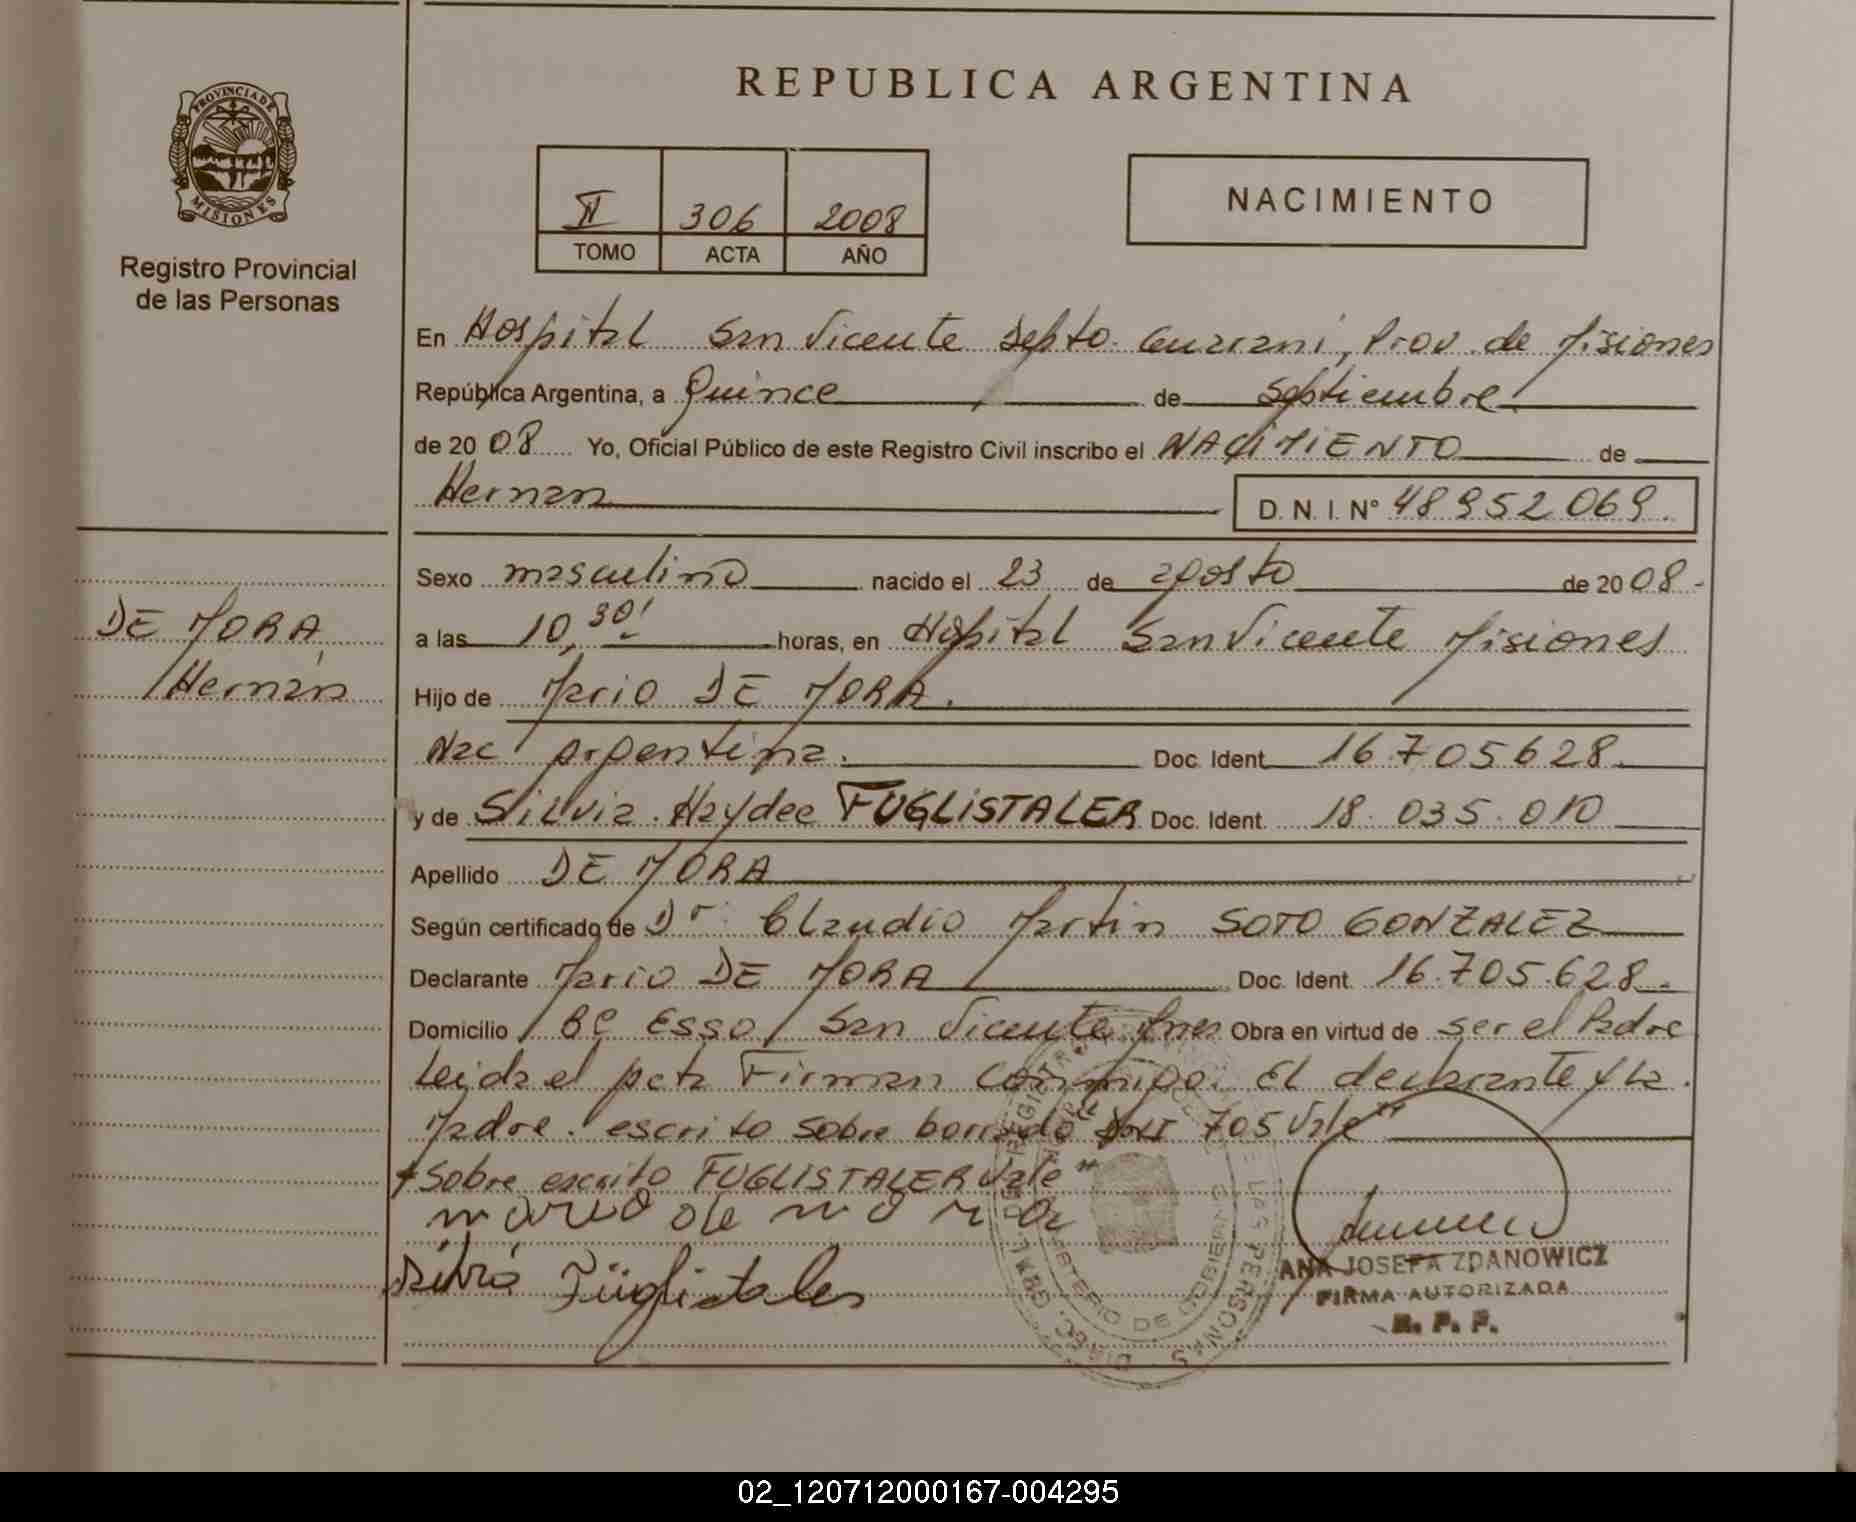 REPUBLICA ARGENTINA
PROVINCIA DE MISIONES
Registro Provincial
de las Personas
II 306 2008
TOMO ACTA AÑO
NACIMIENTO
En Hospital San Vicente Depto. Guaraní, Prov. de Misiones
República Argentina, a Quince de Septiembre
de 20 08 Yo, Oficial Público de este Registro Civil inscribo el NACIMIENTO de
Hernan
D. N. I. N° 48952069.
DE MORA
Hernán
Sexo masculino nacido el 23 de agosto de 20 08.-
a las 10,30' horas, en Hospital San Vicente Misiones
Hijo de Mario DE MORA.
Nac Argentina. Doc. Ident. 16.705628.
y de Silvia Haydee FUGLISTALER Doc. Ident. 18.035.010
Apellido DE MORA
Según certificado de Dr. Claudio Martin SOTO GONZALEZ
Declarante Mario DE MORA Doc. Ident. 16.705.628.-
Domicilio Bº Esso San Vicente Mnes Obra en virtud de ser el Padre
Leida el acta Firman Conmigo. El declarante y la
Madre. escrito sobre borrado "DNI 705 Vale"
+ Sobre escrito FUGLISTALER Vale"
mario de mora
Silvia Füglistaler
ANA JOSEFA ZDANOWICZ
FIRMA AUTORIZADA
R. P. P.
MINISTERIO DE GOBIERNO
DE LAS PERSONAS
02_120712000167-004295